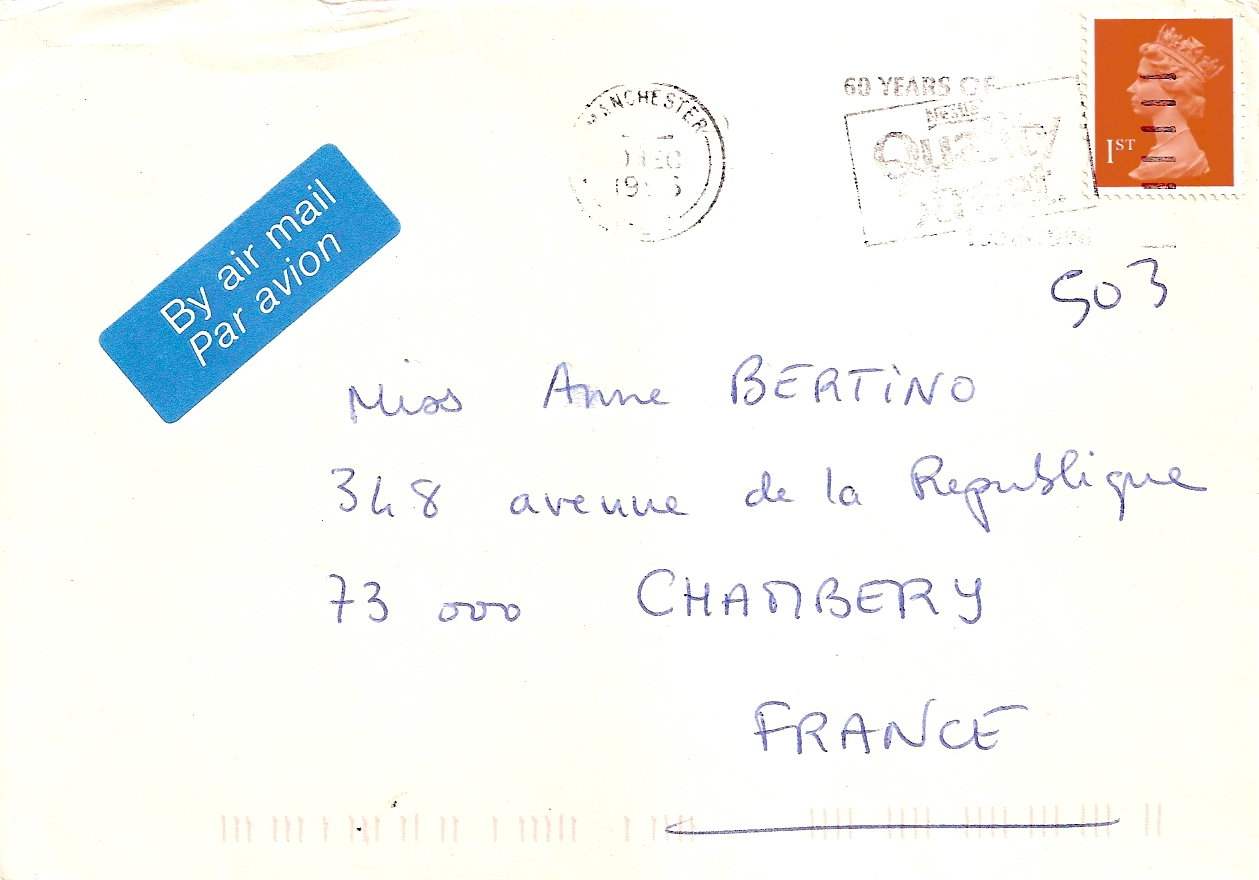 MANCHESTER
DEC
60 YEARS OF
Nestlé
Quality
Street
1ST
By air mail
Par avion
503
Miss Anne BERTINO
348 avenue de la Republique
73 000 CHAMBERY
FRANCE